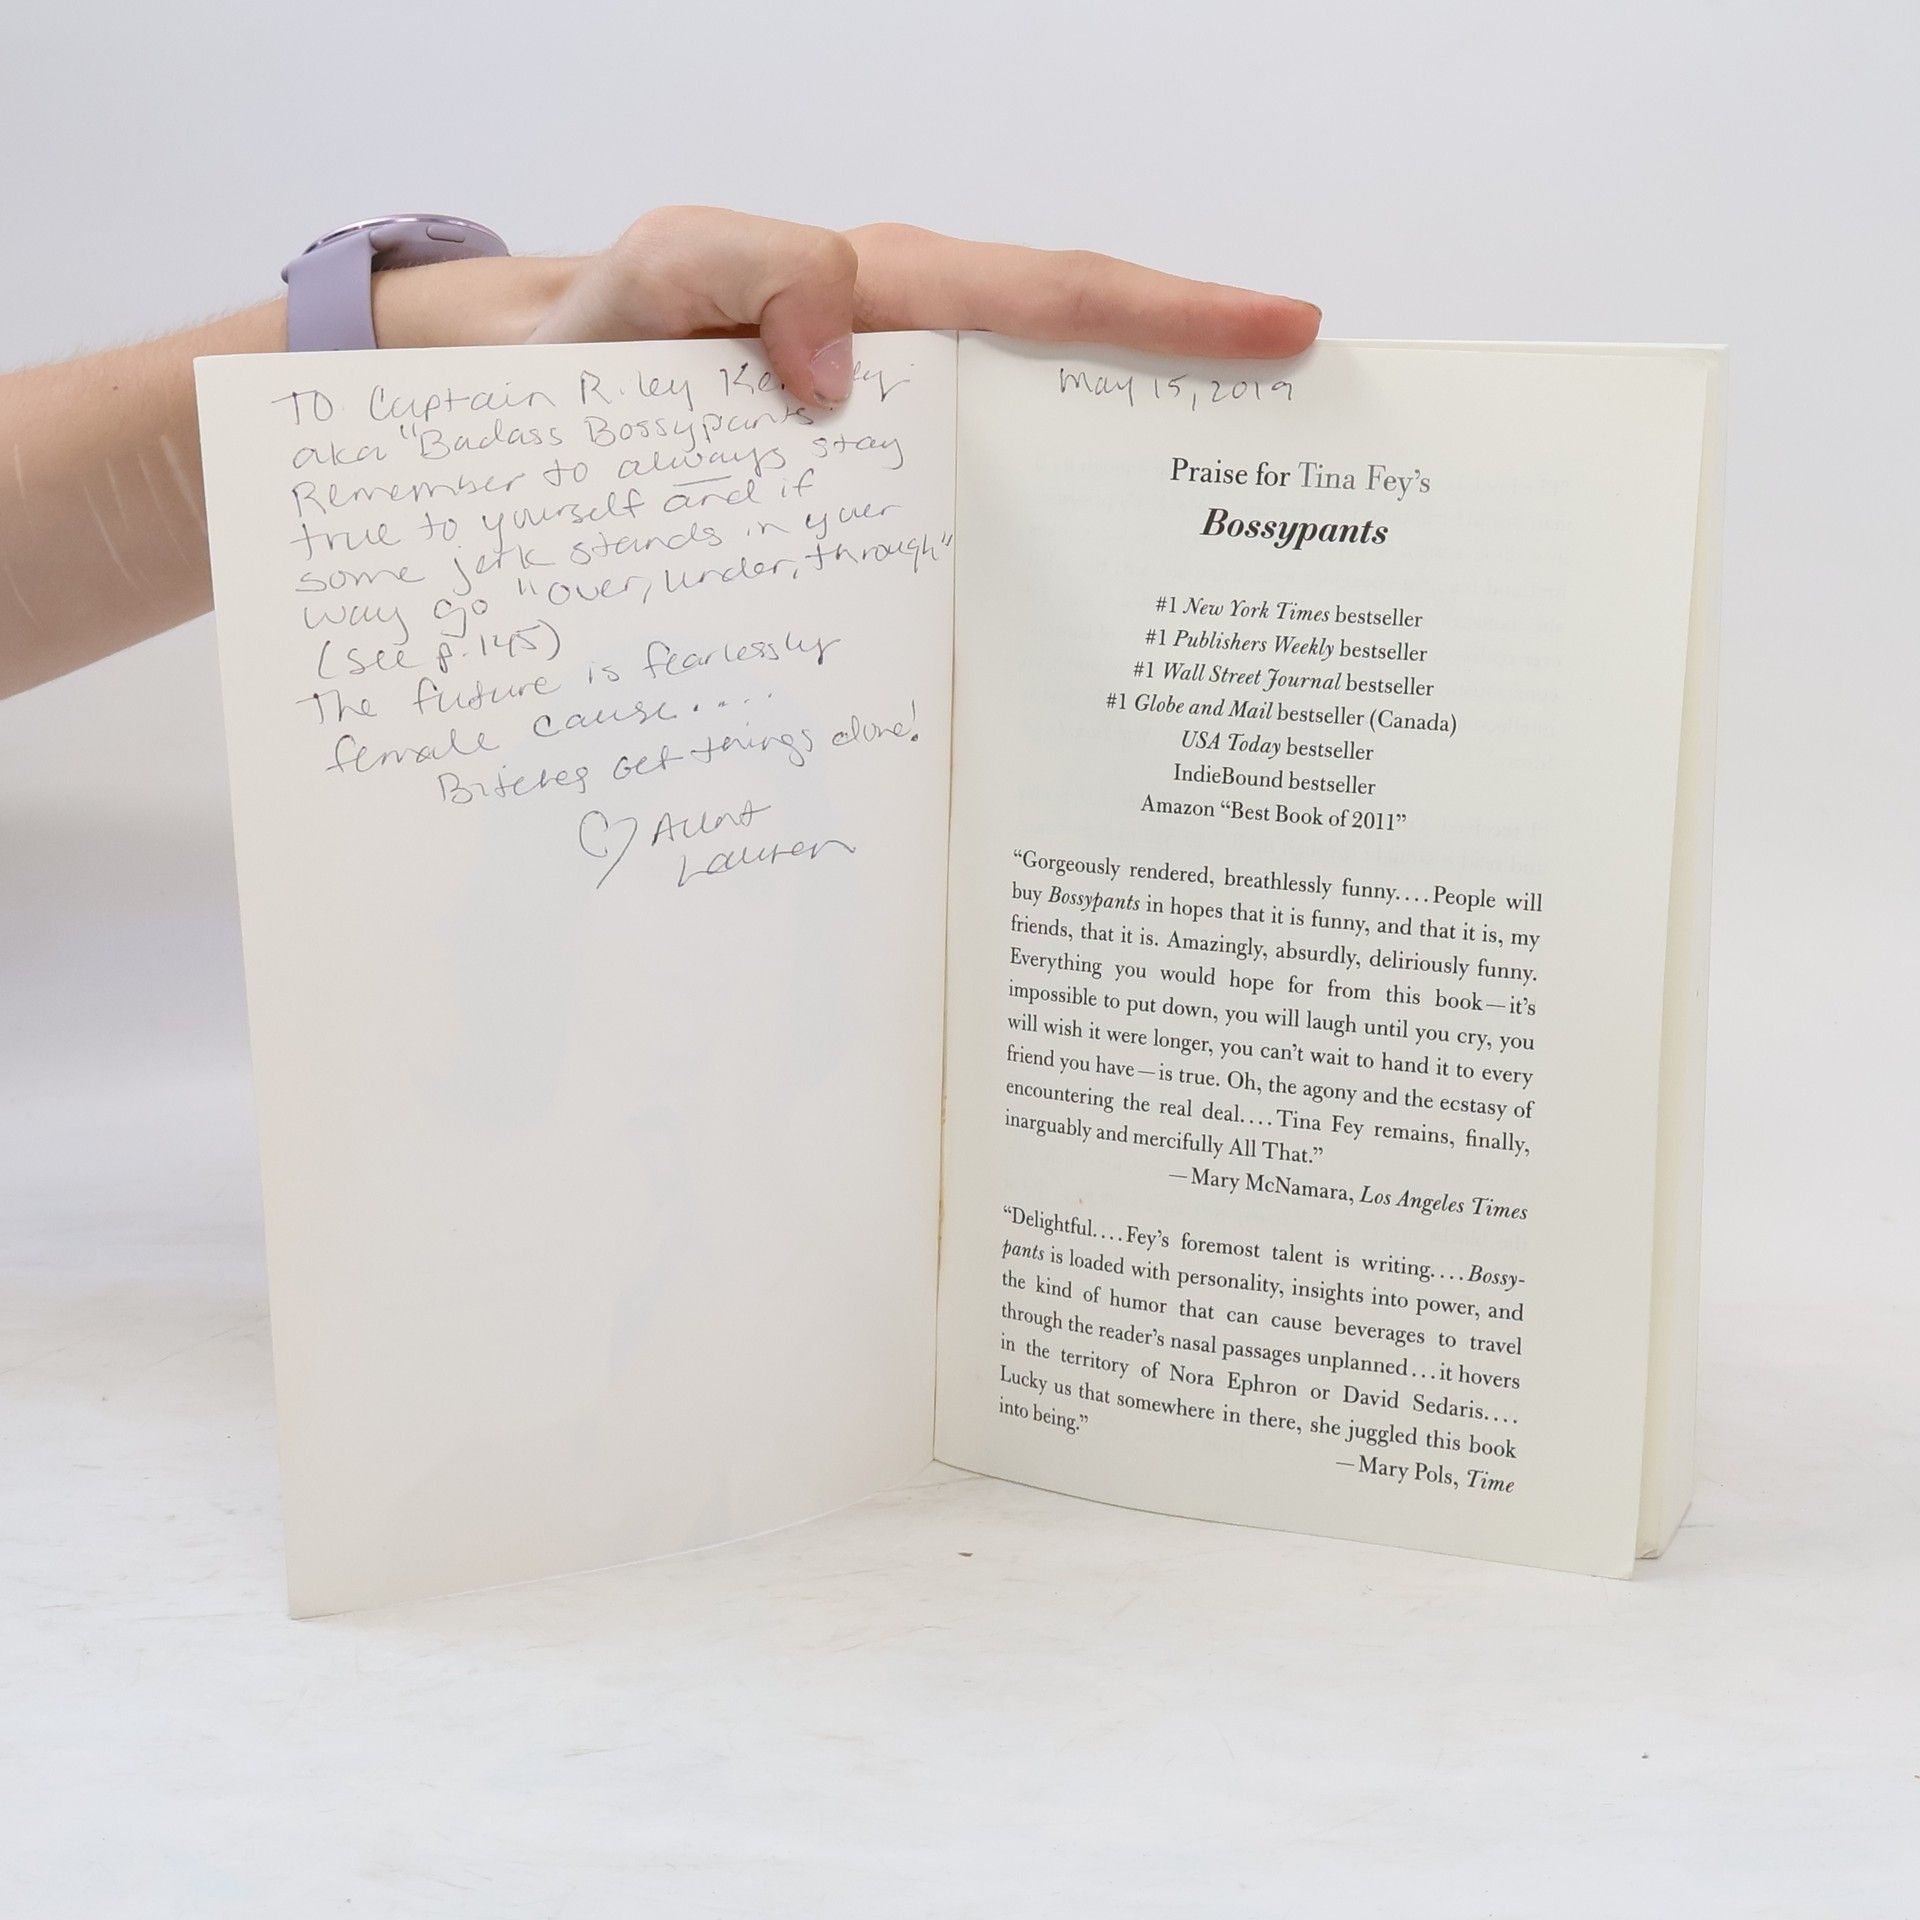 TO Captain Riley
aka "Badass Bossypants"
Remember to always stay
true to yourself and if
some jerk stands in your
way go "over, under, through"
(see p. 145)
The future is fearlessly
female cause....
Bitches get things done!
♡ Aunt
Lauren
May 15, 2019
Praise for Tina Fey's
Bossypants
#1 New York Times bestseller
#1 Publishers Weekly bestseller
#1 Wall Street Journal bestseller
#1 Globe and Mail bestseller (Canada)
USA Today bestseller
IndieBound bestseller
Amazon “Best Book of 2011”
“Gorgeously rendered, breathlessly funny.... People will
buy Bossypants in hopes that it is funny, and that it is, my
friends, that it is. Amazingly, absurdly, deliriously funny.
Everything you would hope for from this book—it's
impossible to put down, you will laugh until you cry, you
will wish it were longer, you can't wait to hand it to every
friend you have—is true. Oh, the agony and the ecstasy of
encountering the real deal.... Tina Fey remains, finally,
inarguably and mercifully All That.”
—Mary McNamara, Los Angeles Times
“Delightful.... Fey's foremost talent is writing.... Bossy-
pants is loaded with personality, insights into power, and
the kind of humor that can cause beverages to travel
through the reader's nasal passages unplanned...it hovers
in the territory of Nora Ephron or David Sedaris....
Lucky us that somewhere in there, she juggled this book
into being.”
—Mary Pols, Time